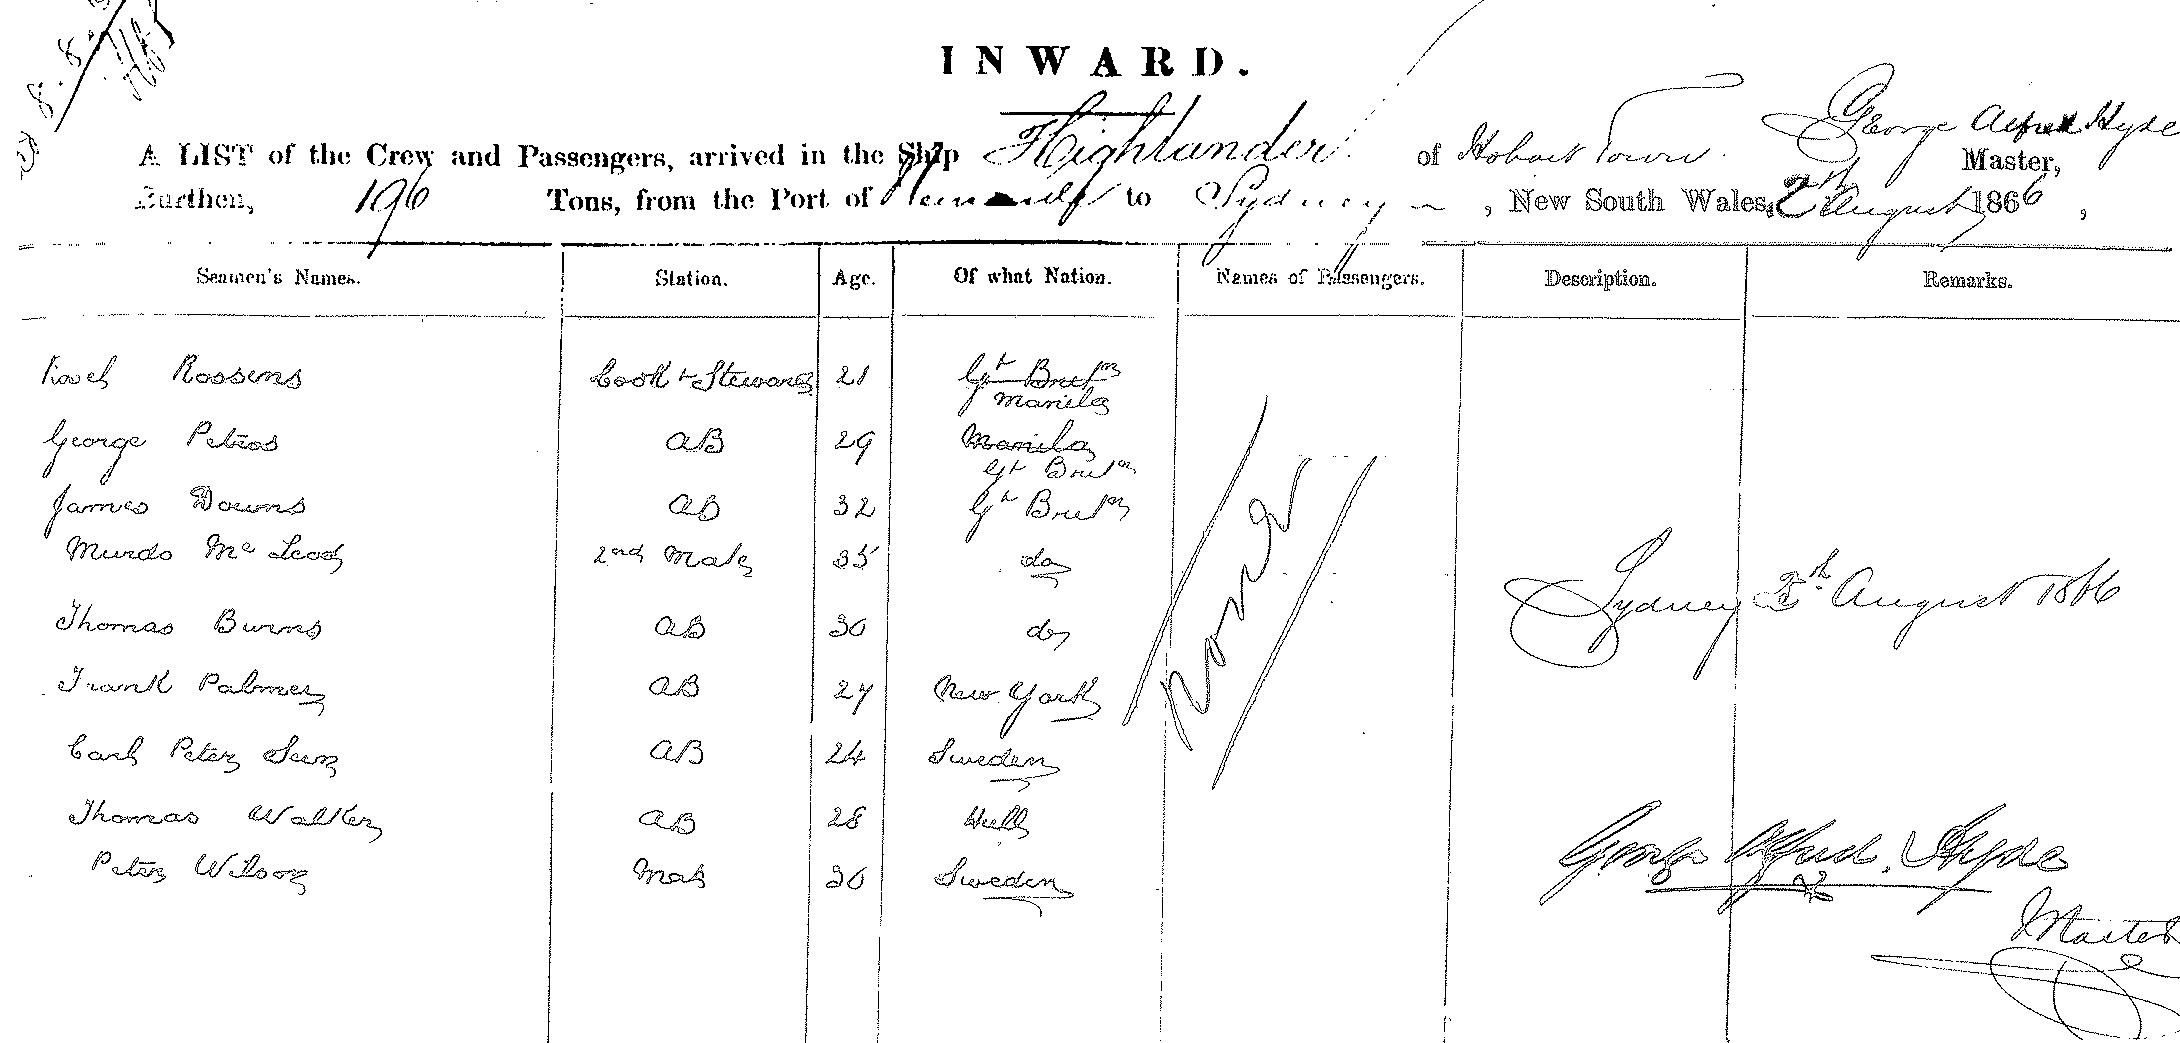 INWARD.
A LIST of the Crew and Passengers, arrived in the Ship Highlander of Hobart Town George Alfred Hyde Master,
Burthen, 196 Tons, from the Port of to Sydney, New South Wales, August 1866,
Seamen's Names. Station. Age. Of what Nation. Names of Passengers. Description. Remarks.
Rossens Cook & Steward 21 Gt Britn
Manila
George Petros AB 29 Manila
Gt Britn
James Downs AB 32 Gt Britn
Murdo Mc Leod 2nd Mate 35 do
Sydney August 1866
Thomas Burns AB 30 do
None
Frank Palmer AB 27 New York
Carl Peter AB 24 Sweden
Thomas Walker AB 28 Hull
Peter Wilson Mate 30 Sweden
George Alfred Hyde
Master